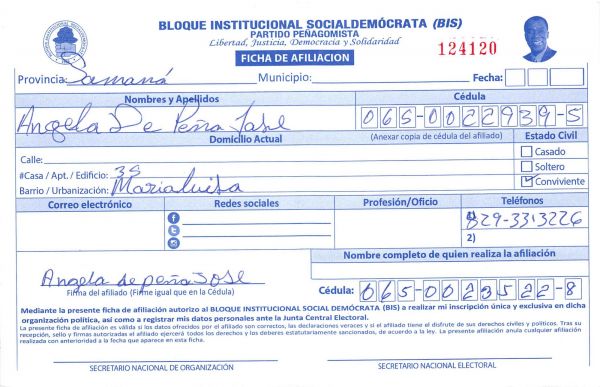 BLOQUE INSTITUCIONAL SOCIALDEMÓCRATA (BIS)
PARTIDO PEÑAGOMISTA
Libertad, Justicia, Democracia y Solidaridad
FICHA DE AFILIACION
124120
Provincia: Samaná Municipio: Fecha:
Nombres y Apellidos Cédula
Angela De Peña Jose 065-0022939-5
Domicilio Actual (Anexar copia de cédula del afiliado) Estado Civil
Calle: Casado
#Casa / Apt. / Edificio: 35 Soltero
Barrio / Urbanización: Marialuisa Conviviente
Correo electrónico Redes sociales Profesión/Oficio Teléfonos
1) 829-33-3226
2)
Nombre completo de quien realiza la afiliación
Angela de peña JOSE
Firma del afiliado (Firme igual que en la Cédula) Cédula: 065-0023522-8
Mediante la presente ficha de afiliación autorizo al BLOQUE INSTITUCIONAL SOCIAL DEMÓCRATA (BIS) a realizar mi inscripción única y exclusiva en dicha
organización política, así como a registrar mis datos personales ante la Junta Central Electoral.
La presente ficha de afiliación es válida si los datos ofrecidos por el afiliado son correctos, las declaraciones veraces y si el afiliado tiene el disfrute de sus derechos civiles y políticos. Tras su
recepción, sello y firmas autorizadas el afiliado ejercerá todos los derechos y los deberes estatutariamente sancionados, de acuerdo a la ley. La presente afiliación anula cualquier afiliación
realizada con anterioridad a la fecha que aparece en esta ficha.
SECRETARIO NACIONAL DE ORGANIZACIÓN SECRETARIO NACIONAL ELECTORAL